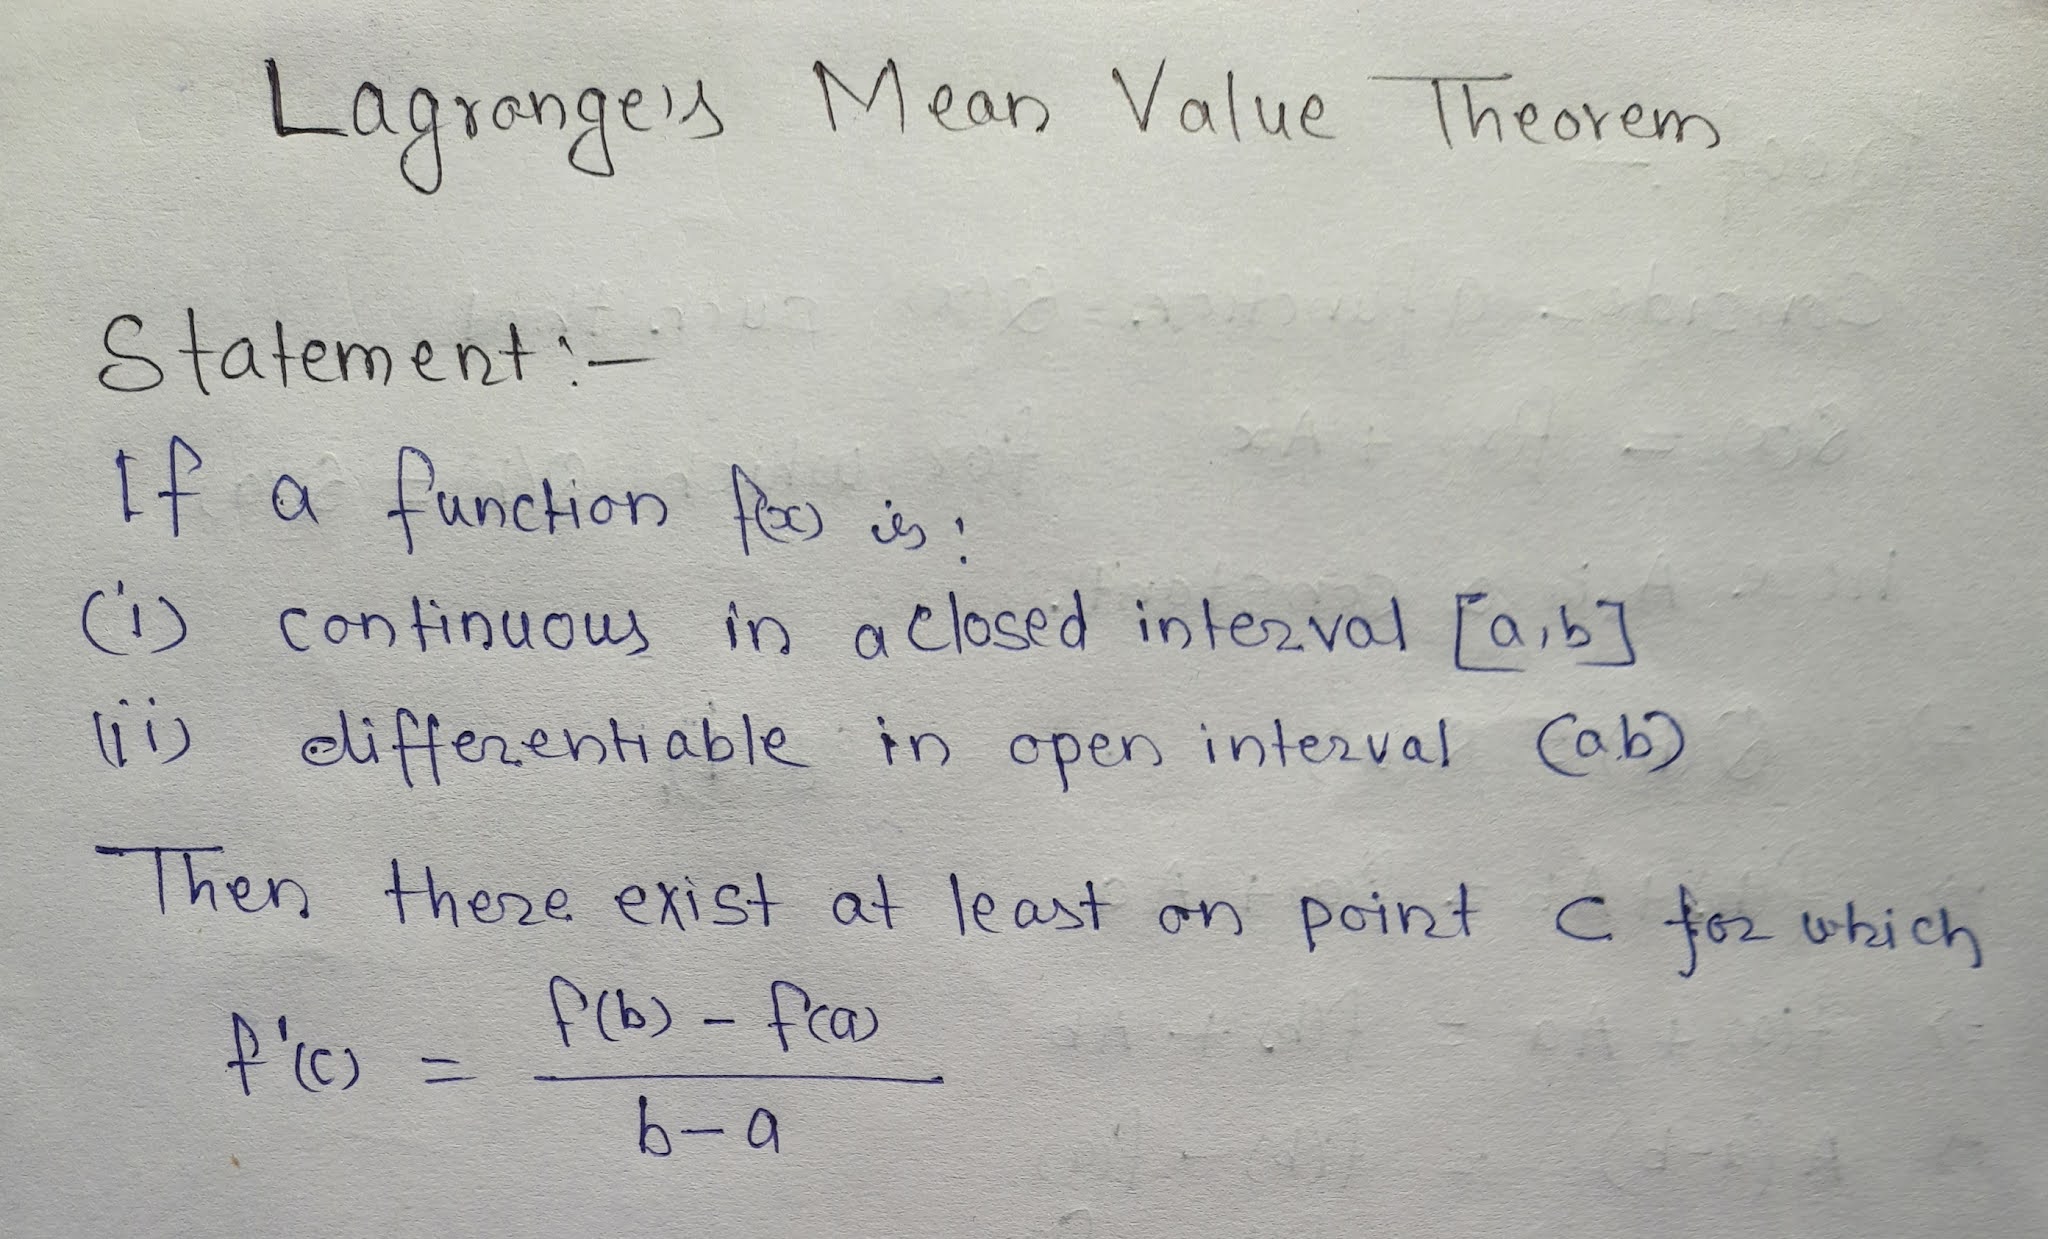 Lagrange's Mean Value Theorem
Statement:-
If a function f(x) is:
(i) continuous in a closed interval [a,b]
(ii) differentiable in open interval (a.b)
Then there exist at least on point C for which
f'(c) = f(b) - f(a)
b-a